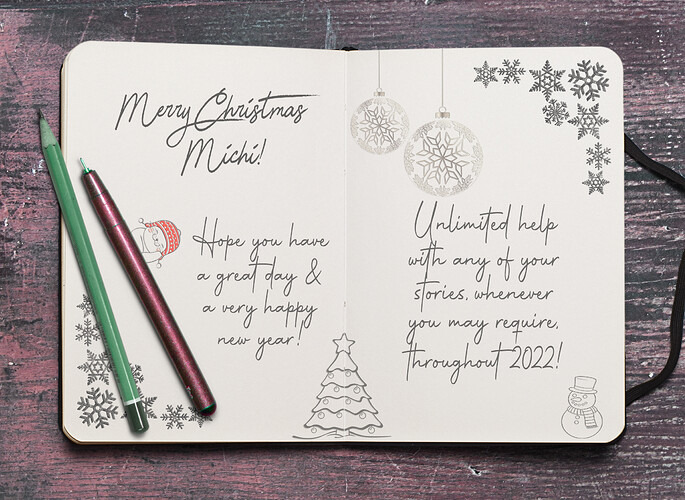 Merry Christmas
Michi!
Hope you have
a great day &
a very happy
new year!
Unlimited help
with any of your
stories, whenever
you may require,
throughout 2022!